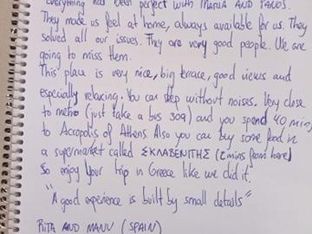 everything has been perfect with MARIA AND TAKOS.
They made us feel at home, always available for us. They
solved all our issues. They are very good people. We are
going to miss them.
This place is very nice, big terrace, good views and
especially relaxing. You can sleep without noises. Very close
to metro (just take a bus 309) and you spend 40 mins,
to Acropolis of Athens. Also you can buy some food in
a supermarket called ΣΚΛΑΒΕΝΙΤΗΣ (2 mins from here)
So enjoy your trip in Greece like we did it.
"A good experience is built by small details"
RITA AND MANU (SPAIN)